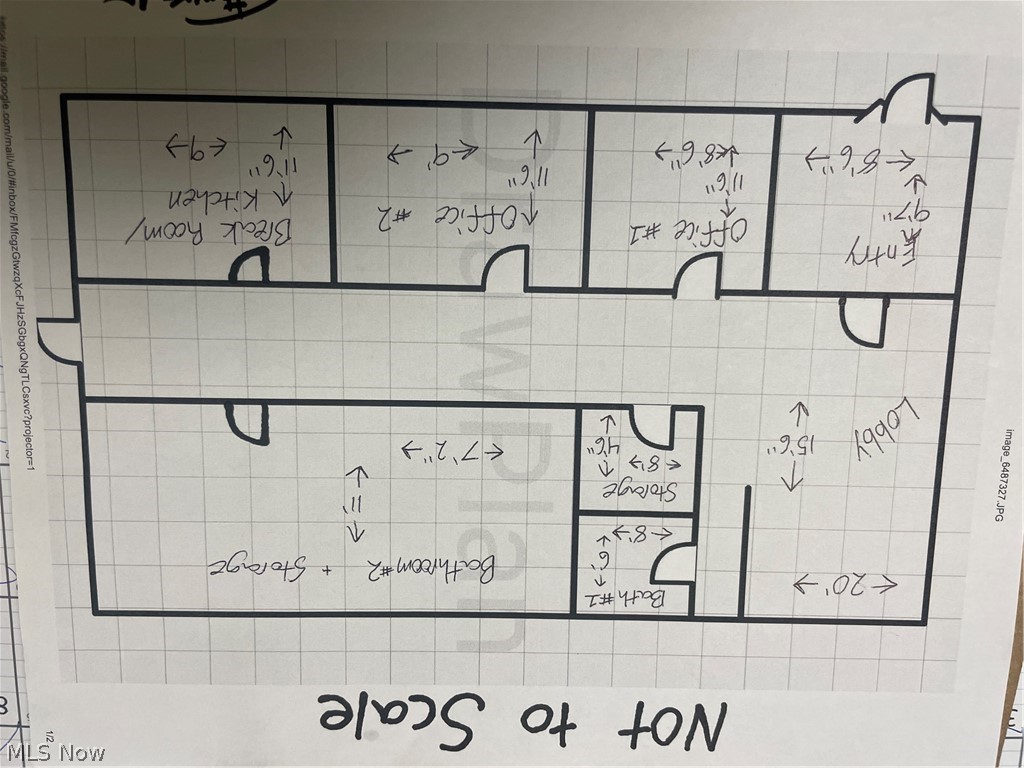 Not to Scale
image_6487327.JPG
1/2
20'
Bath #1
6'
8'
Bathroom #2 + Storage
Storage
8'
4'6"
11'
7'2"
Lobby
15'6"
Entry
9'7"
8'6"
Office #1
11'6"
8'6"
Office #2
11'6"
9'
Break Room/
Kitchen
11'6"
9'
MLS Now